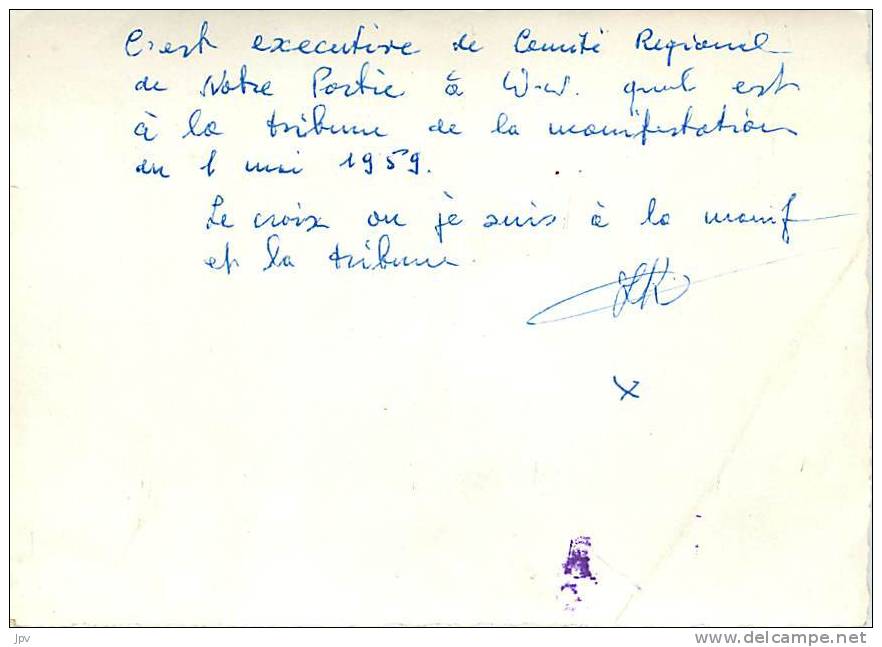 C'est executive de Comité Regional
de Notre Partie à W-w. qui est
à la tribune de la manifestation
du 1 mai 1959.
Le croix ou je suis à la manif
et la tribune.
X
jpv
www.delcampe.net